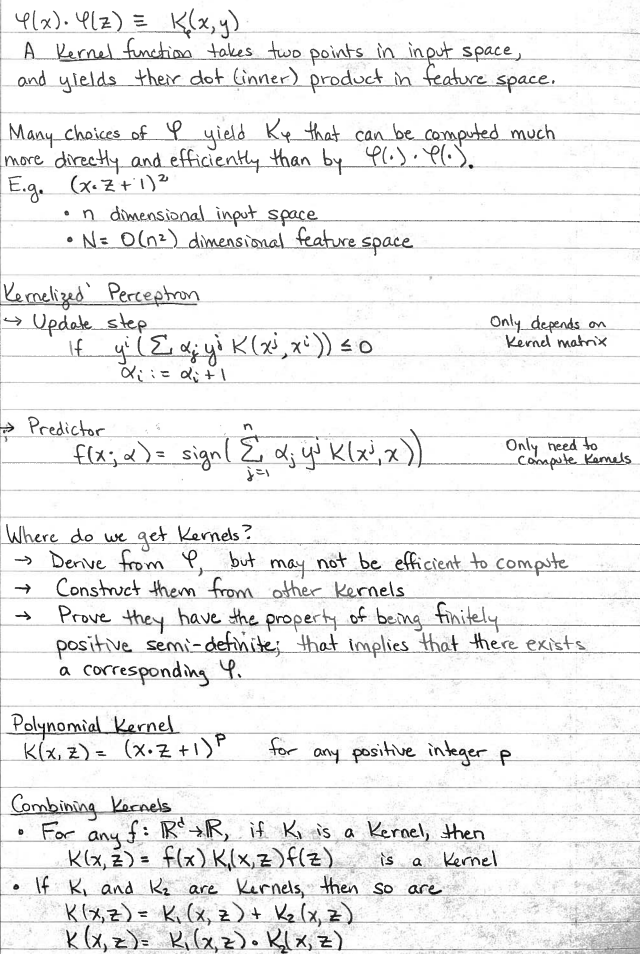 φ(x)·φ(z) ≡ Kφ(x,y)
A Kernel function takes two points in input space,
and yields their dot (inner) product in feature space.
Many choices of φ yield Kφ that can be computed much
more directly and efficiently than by φ(·)·φ(·).
E.g. (x·z+1)²
• n dimensional input space
• N= O(n²) dimensional feature space
Kernelized Perceptron
↪ Update step
If yⁱ(∑ αⱼ yʲ K(xʲ, xⁱ)) ≤ 0
αᵢ := αᵢ + 1
Only depends on
Kernel matrix
→ Predictor
f(x; α) = sign(∑ⱼ₌₁ⁿ αⱼ yʲ K(xʲ, x))
Only need to
compute Kernels
Where do we get Kernels?
→ Derive from φ, but may not be efficient to compute
→ Construct them from other Kernels
→ Prove they have the property of being finitely
positive semi-definite; that implies that there exists
a corresponding φ.
Polynomial Kernel
K(x,z) = (x·z+1)ᵖ for any positive integer p
Combining Kernels
• For any f: ℝᵈ→ℝ, if K₁ is a Kernel, then
K(x,z) = f(x) K₁(x,z) f(z) is a Kernel
• If K₁ and K₂ are Kernels, then so are
K(x,z) = K₁(x,z) + K₂(x,z)
K(x,z) = K₁(x,z) · K₂(x,z)